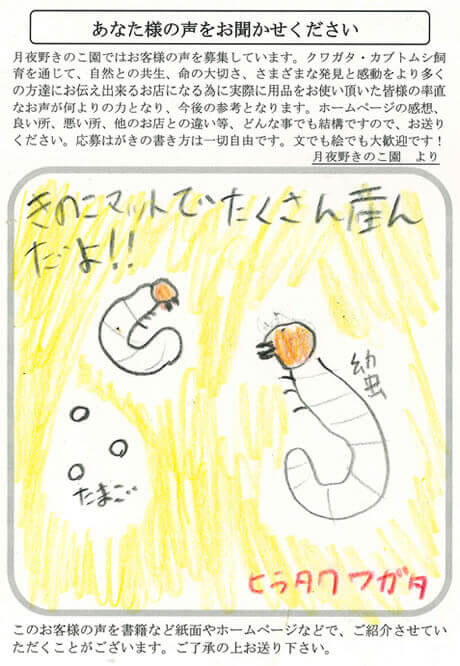 あなた様の声をお聞かせください
月夜野きのこ園ではお客様の声を募集しています。クワガタ・カブトムシ飼
育を通じて、自然との共生、命の大切さ、さまざまな発見と感動をより多く
の方達にお伝え出来るお店になる為に実際に用品をお使い頂いた皆様の率直
なお声が何よりの力となり、今後の参考となります。ホームページの感想、
良い所、悪い所、他のお店との違い等、どんな事でも結構ですので、お送り
ください。応募はがきの書き方は一切自由です。文でも絵でも大歓迎です！
月夜野きのこ園　より
きのこマットでいたくさん産ん
だよ!!
幼虫
たまご
ヒラタクワガタ
このお客様の声を書籍など紙面やホームページなどで、ご紹介させてい
ただくことがございます。ご了承の上お送り下さい。